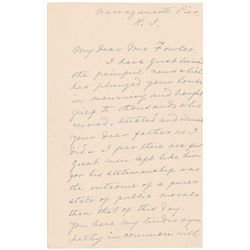 Narragansett Pier,
R. I.
My dear Mrs Fowler,
I have just learned
the painful news which
has plunged your house
in mourning and brought
grief to thousands who
revered, trusted and
your dear father as I
did — I fear there are few
great men left like him
for his statesmanship was
the outcome of a purer
state of public morals
than that of this day
You have my tender sym
pathy in common with